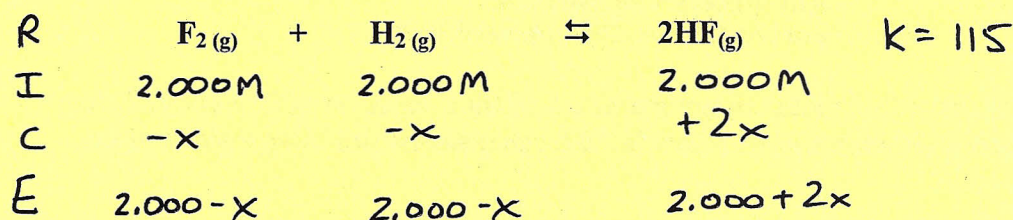 R F₂ (g) + H₂ (g) ⇆ 2HF(g) K = 115
I 2.000M 2.000M 2.000M
C -x -x +2x
E 2.000-x 2.000-x 2.000+2x